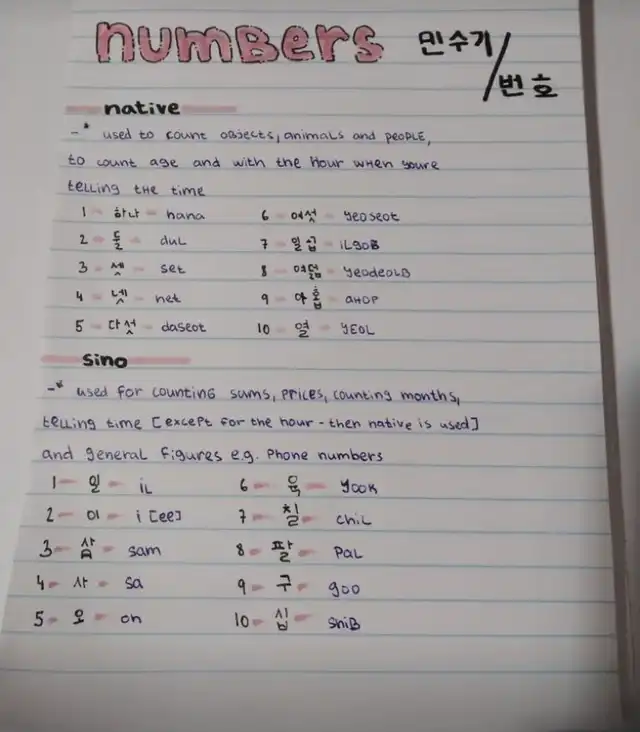 numbers 민수기/번호
native
-* used to count objects, animals and people,
to count age and with the hour when youre
telling the time
1 - 하나 - hana 6 - 여섯 - yeoseot
2 - 둘 - dul 7 - 일곱 - ilgob
3 - 셋 - set 8 - 여덟 - yeodeolb
4 - 넷 - net 9 - 아홉 - ahop
5 - 다섯 - daseot 10 - 열 - yeol
sino
-* used for counting sums, prices, counting months,
telling time [except for the hour - then native is used]
and general figures e.g. phone numbers
1 - 일 - il 6 - 육 - yook
2 - 이 - i [ee] 7 - 칠 - chil
3 - 삼 - sam 8 - 팔 - pal
4 - 사 - sa 9 - 구 - goo
5 - 오 - oh 10 - 십 - shib